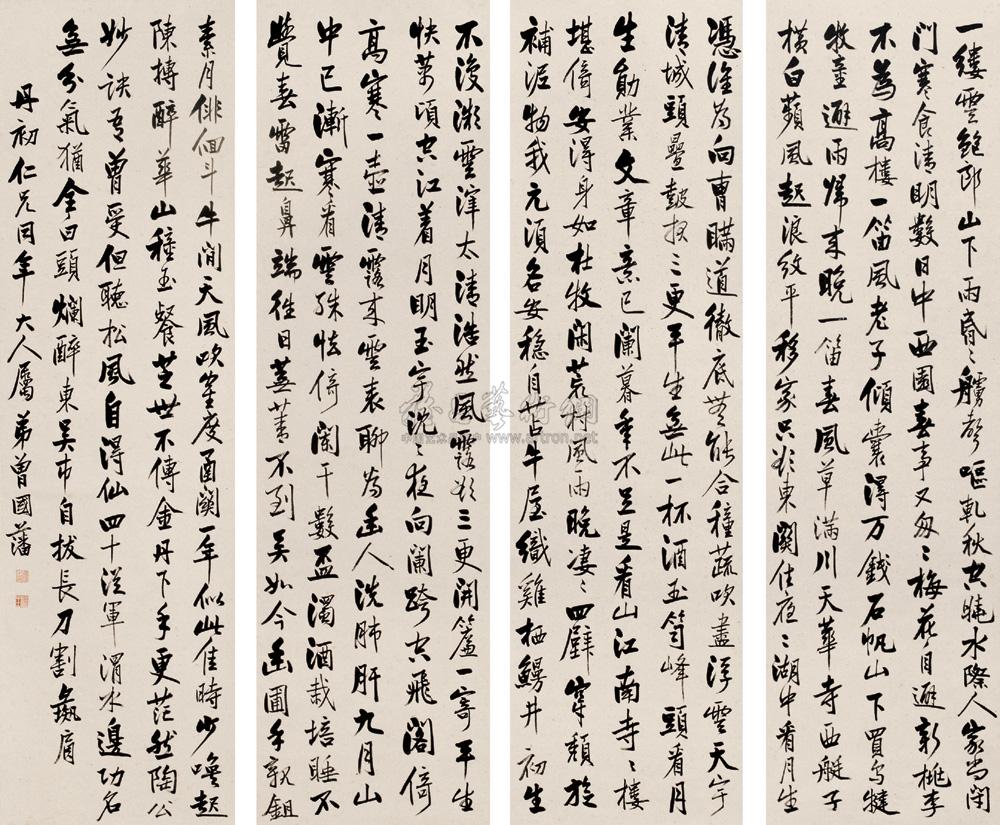 一縷雲鮑郎山下雨昏〻艣聲嘔軋秋空曉水際人家尚閉
門寒食清明數日中西園春事又匆〻梅花自避新桃李
不為高樓一笛風老子傾囊得万錢石帆山下買烏犍
牧童避雨歸來晚一笛春風草滿川天華寺西艇子
橫白蘋風起浪紋平移家只欲東關住夜〻湖中看月生
憑誰為向曹瞞道徹底無能合種蔬吹盡浮雲天宇
清城頭疊鼓報三更平生無此一杯酒五笥峰頭看月
生勛業文章意已闌暮年不足是看山江南寺〻樓
堪倚安得身如杜牧閑荒村風雨晚淒〻四壁穿頹旋
補泥物我元須各安穩自苫牛屋織雞栖鰻井初生
不復微雲滓太清浩然風露欲三更開簾一寄平生
快萬頃空江着月明玉宇沈〻夜向闌跨空飛閣倚
高寒一壺清露來雲表聊為幽人洗肺肝九月山
中已漸寒看雲殊怯倚闌干數盃濁酒栽培睡不
覺春雷起鼻端往日蕪菁不到吳如今幽圃手親鉏
素月徘徊斗牛間天風吹笙度函關一年似此佳時少喚起
陳摶醉華山種玉餐芝世不傳金丹下手更茫然陶公
妙訣吾曾受但聽松風自得仙四十從軍渭水邊功名
無分氣猶全白頭爛醉東吳市自拔長刀割彘肩
丹初仁兄同年大人屬弟曾國藩
www.artron.net